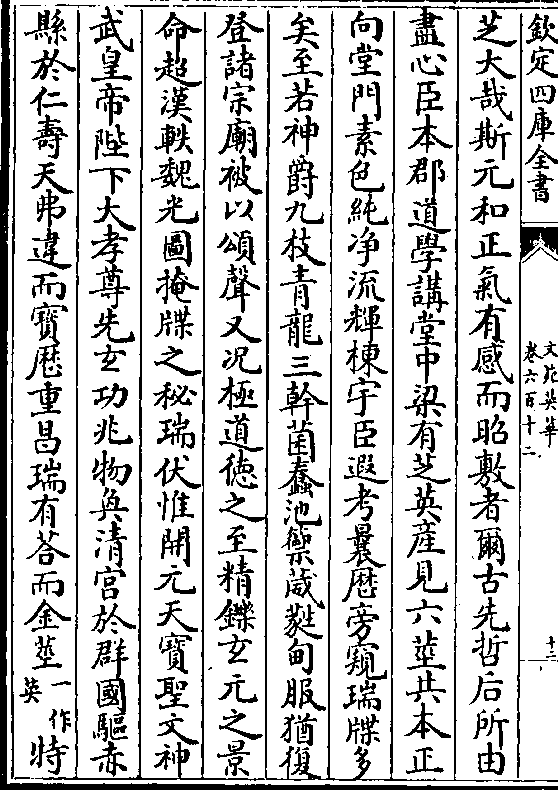 欽定四庫全書
文苑英華
卷六百十二
十三
芝大哉斯元和正氣有感而昭敷者爾古先哲后所由
盡心臣本郡道學講堂中梁有芝英産見六莖共本正
向堂門素色純净流輝棟宇臣遐考曩厯旁窺瑞牒多
矣至若神爵九枝青龍三幹菌蠢池籞葳蕤甸服猶復
登諸宗廟被以頌聲又况極道德之至精鑠玄元之景
命超漢軼魏光圖掩牒之秘瑞伏惟開元天寶聖文神
武皇帝陛下大孝尊先玄功兆物奐清宮於群國驅赤
縣於仁壽天弗違而寶厯重昌瑞有荅而金莖一作英特